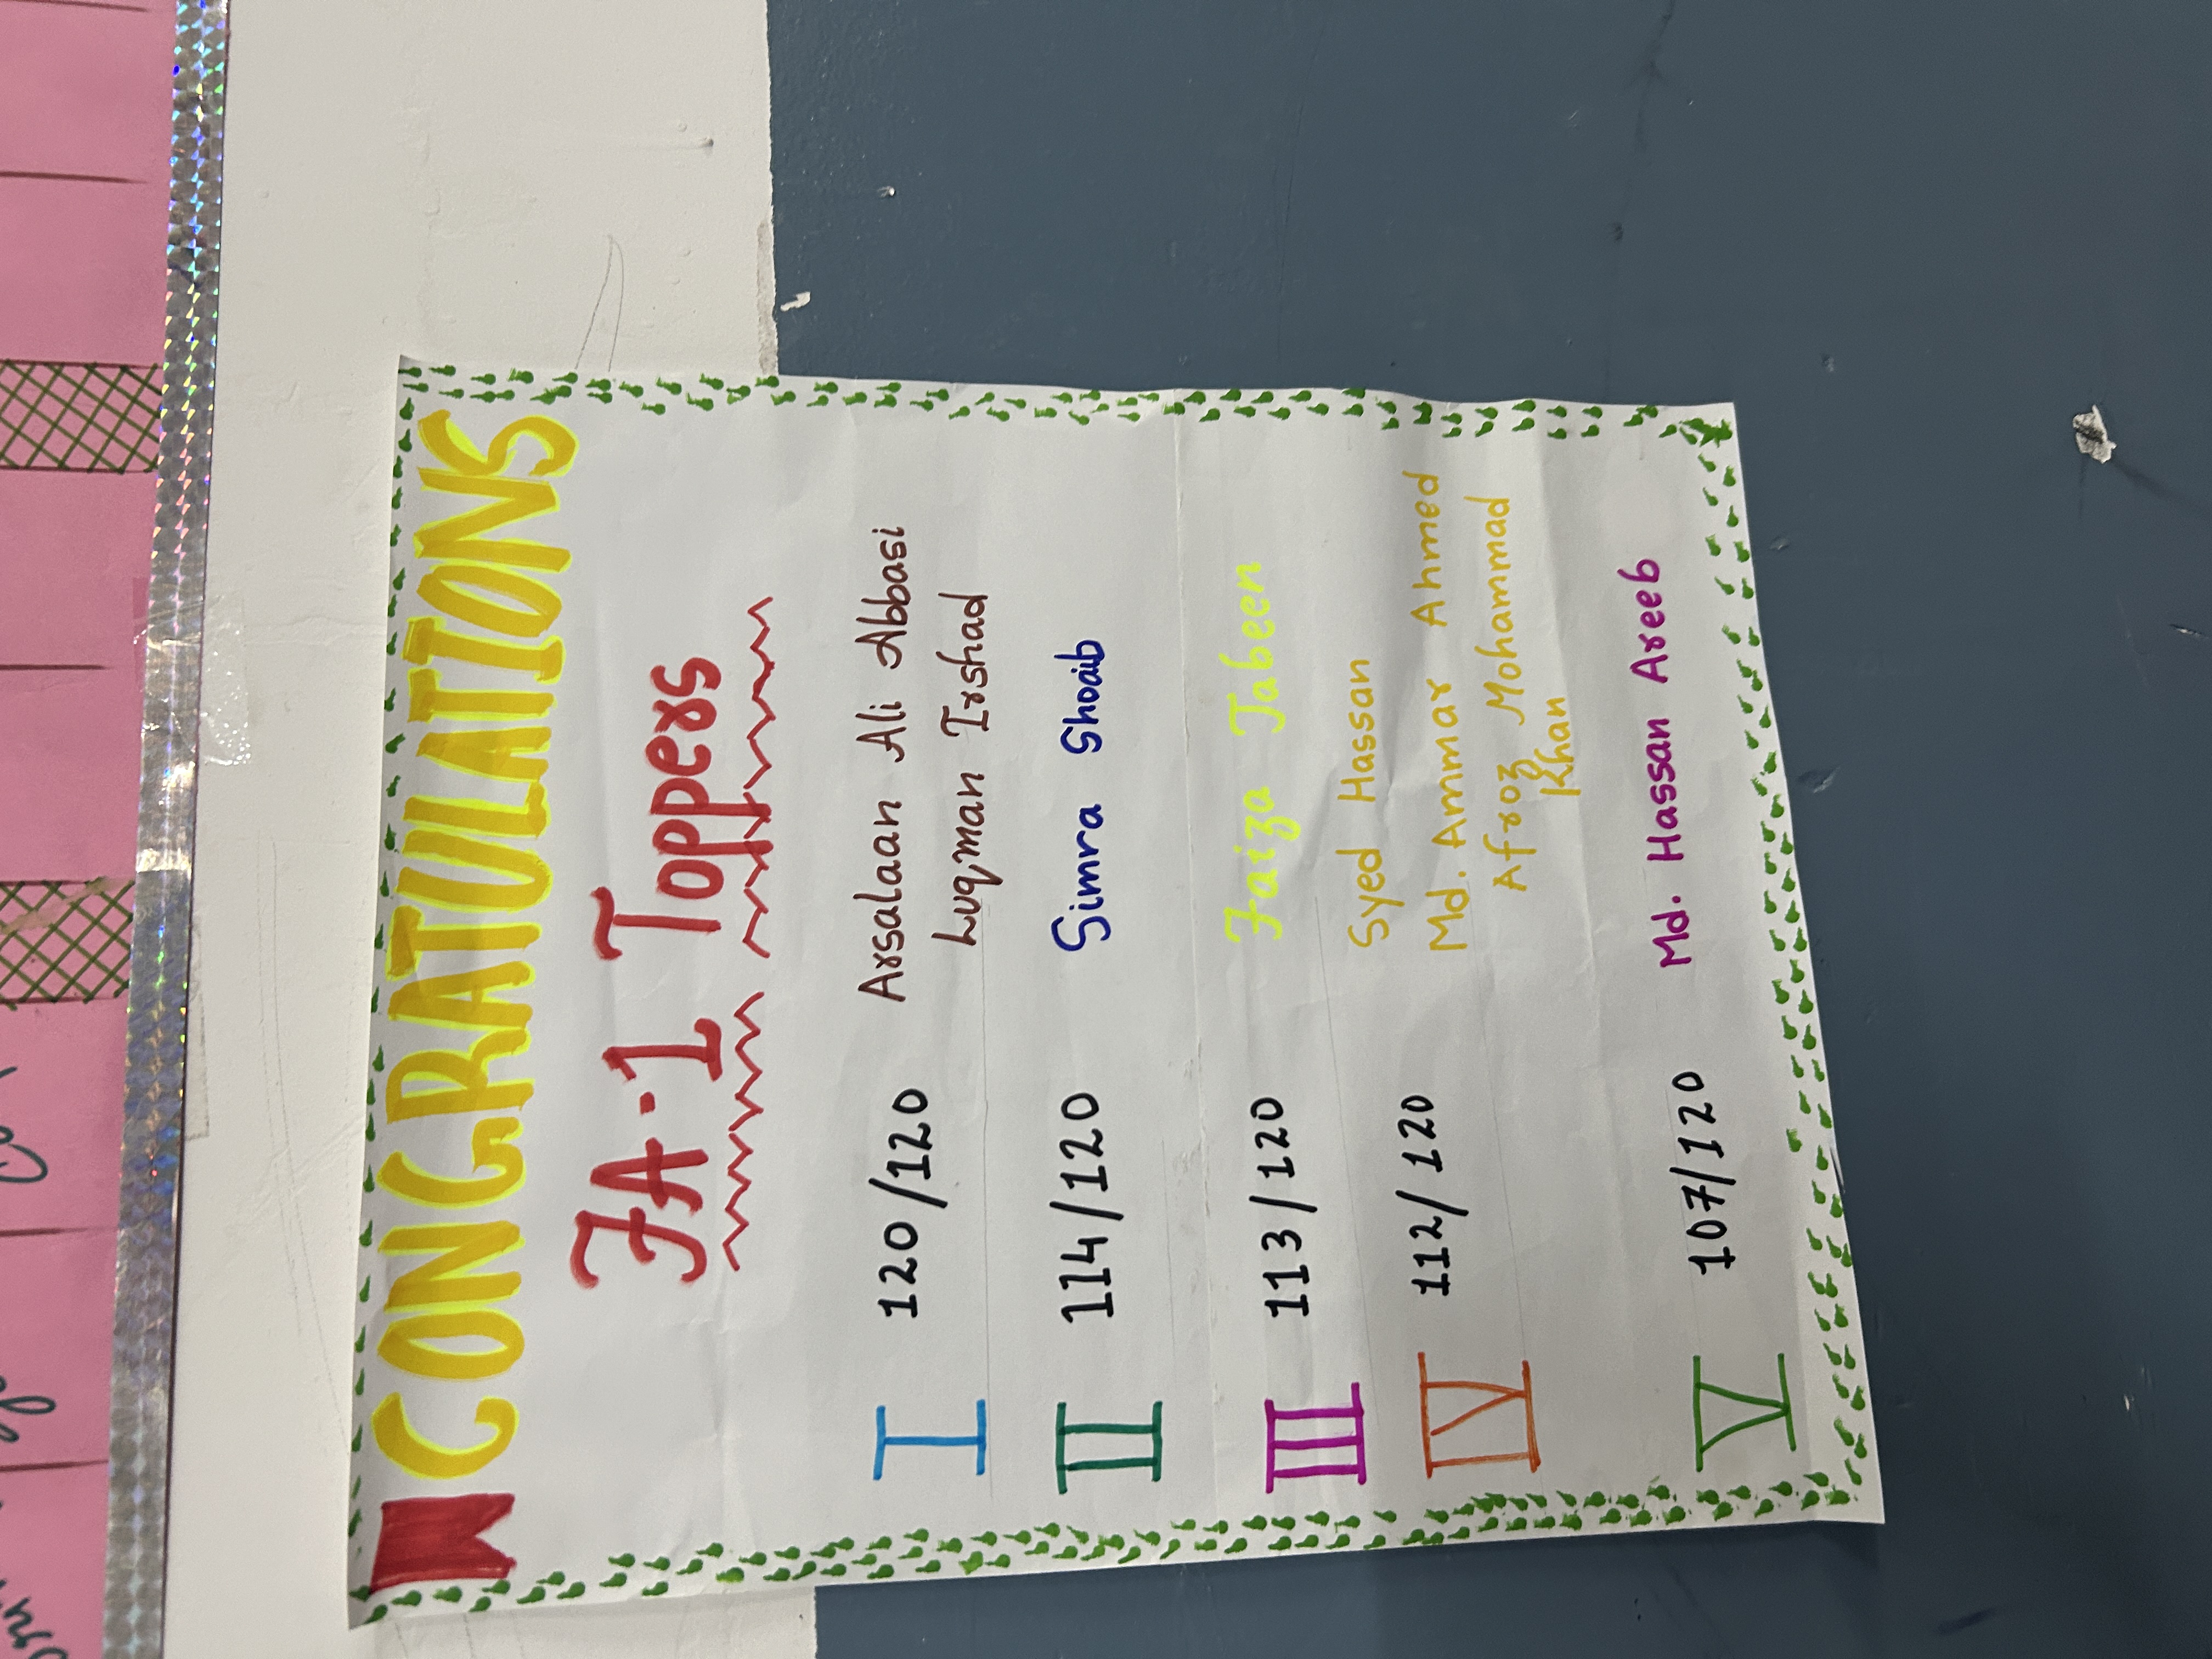 CONGRATULATIONS
FA-1 Toppers
I 120/120 Arsalaan Ali Abbasi
Luqman Irshad
II 114/120 Simra Shoaib
III 113/120 Faiza Jabeen
IV 112/120 Syed Hassan
Md. Ammar Ahmed
Afroz Mohammad
Khan
V 107/120 Md. Hassan Areeb